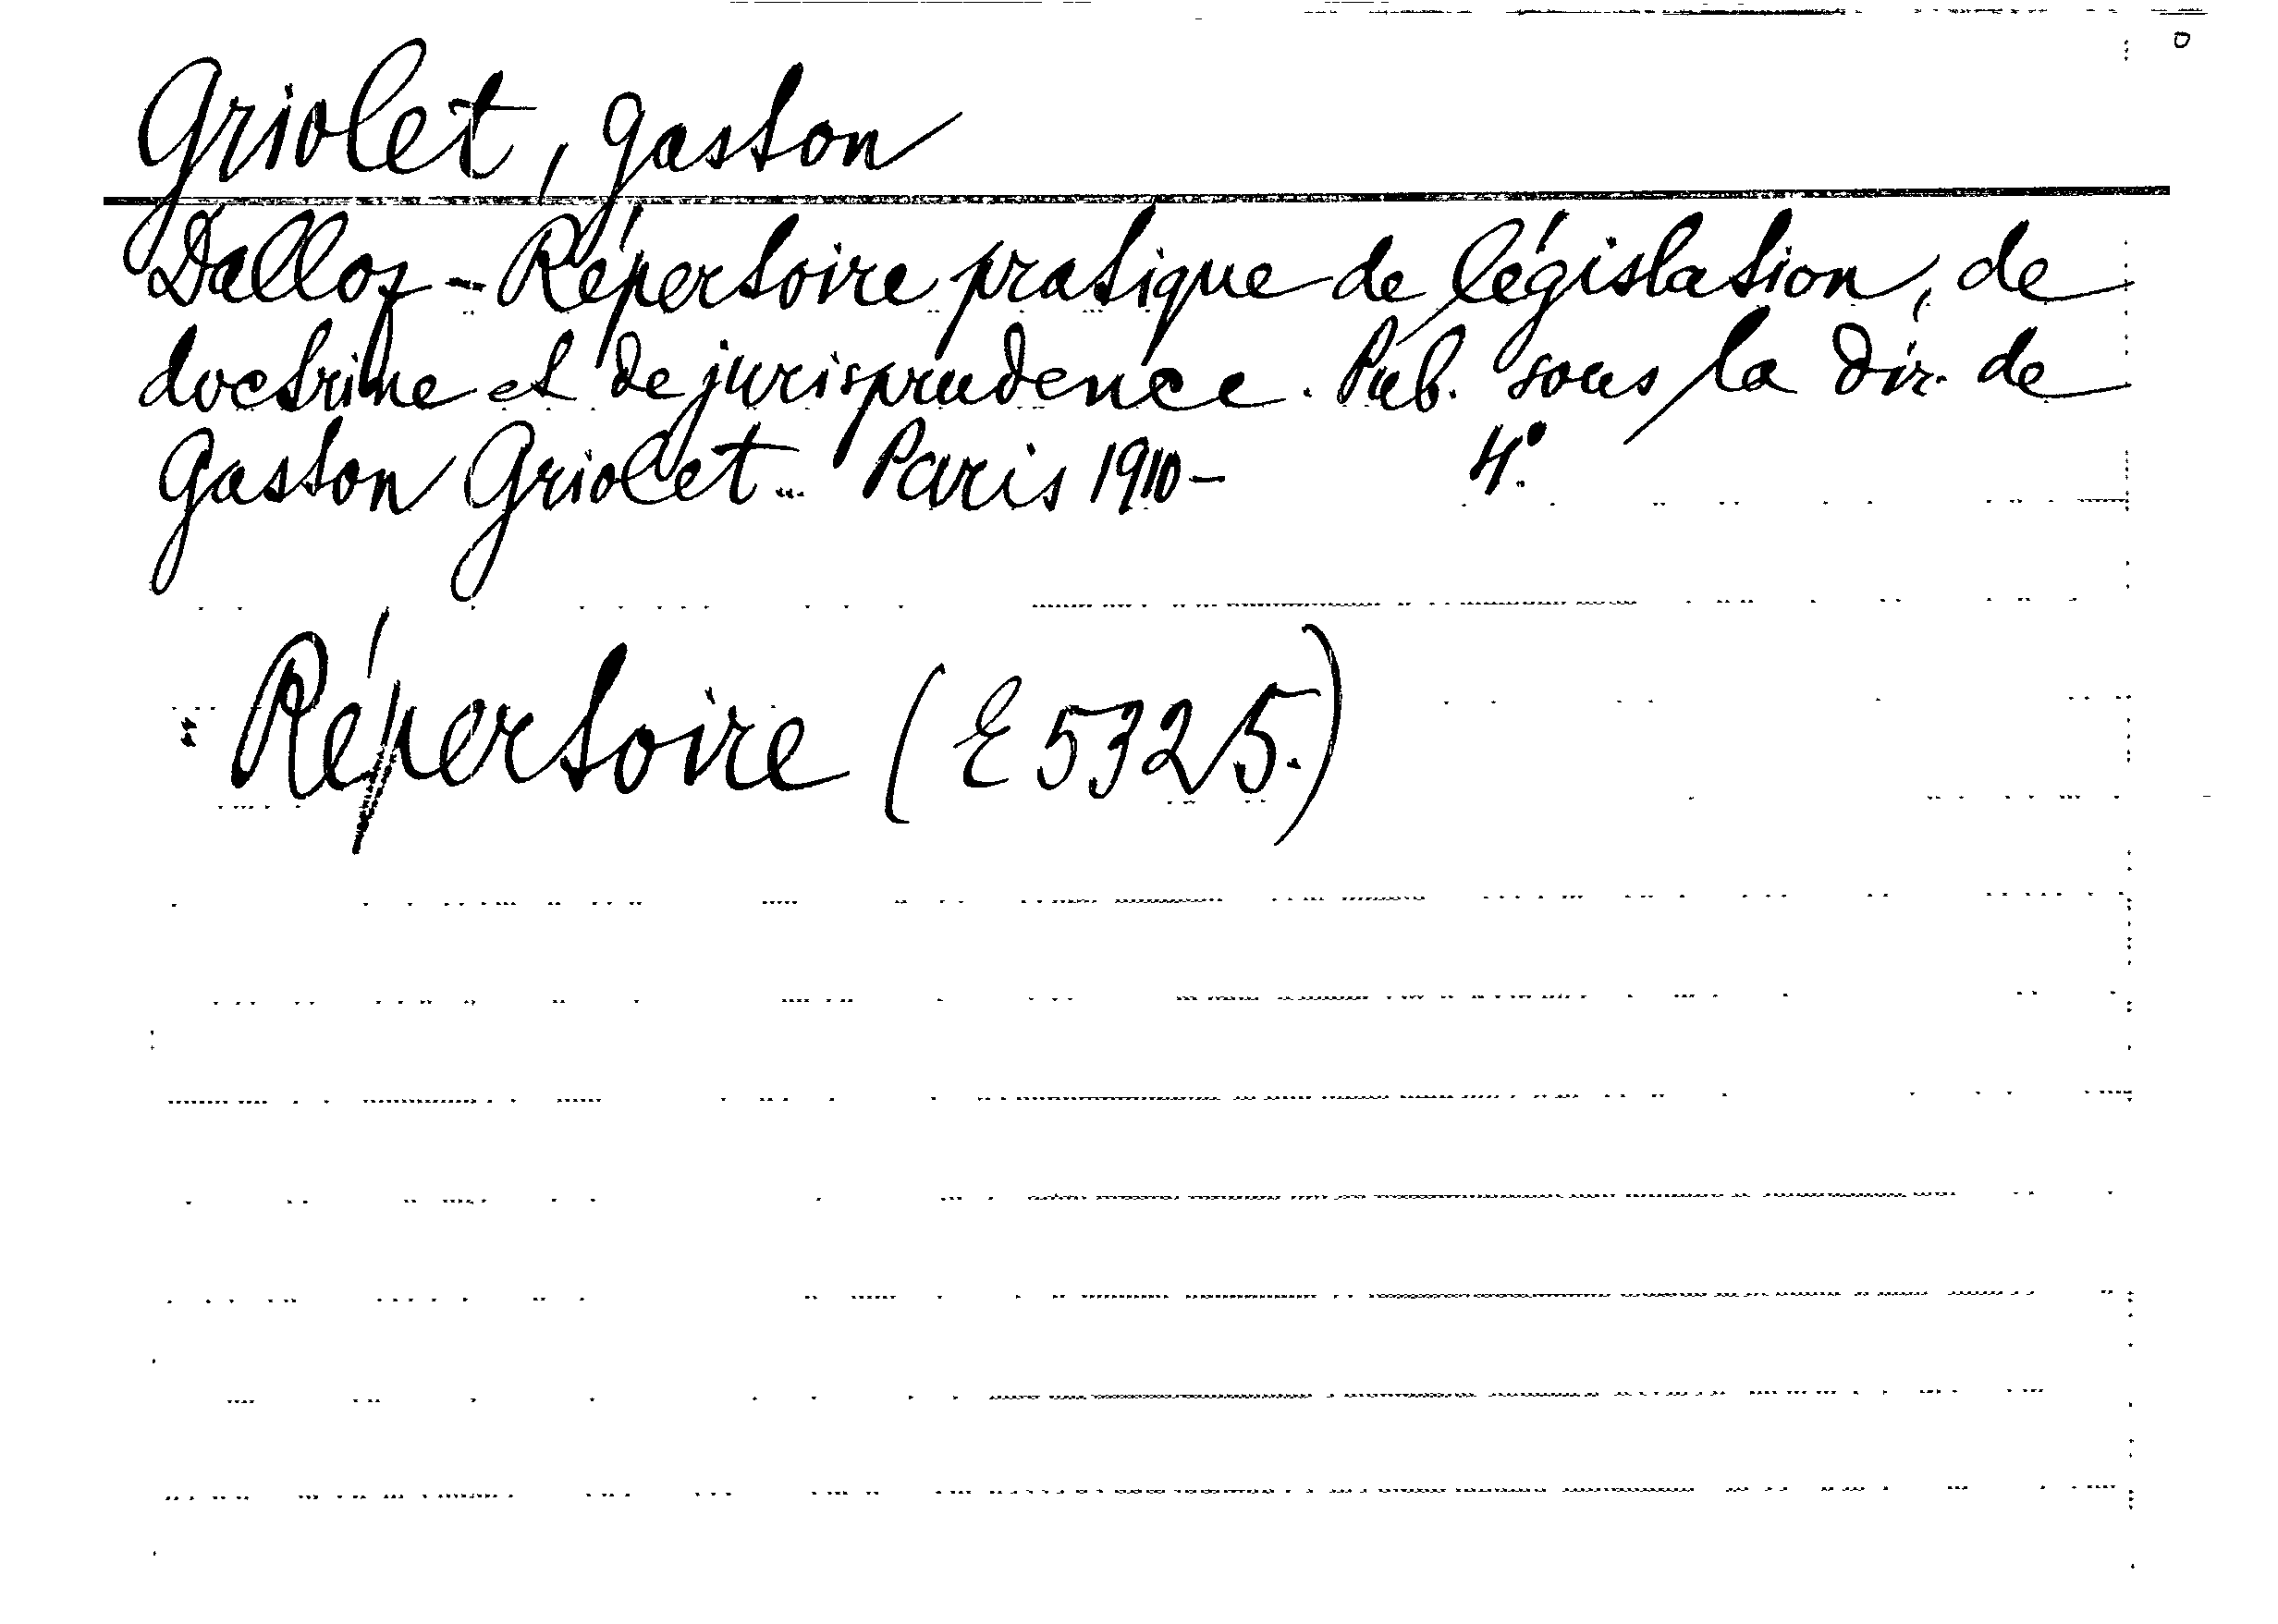 Griolet, Gaston
Dalloz - Répertoire pratique de législation, de
doctrine et de jurisprudence. Pub. sous la dir. de
Gaston Griolet... Paris 1910- 4°.
: Répertoire (E 5325.)